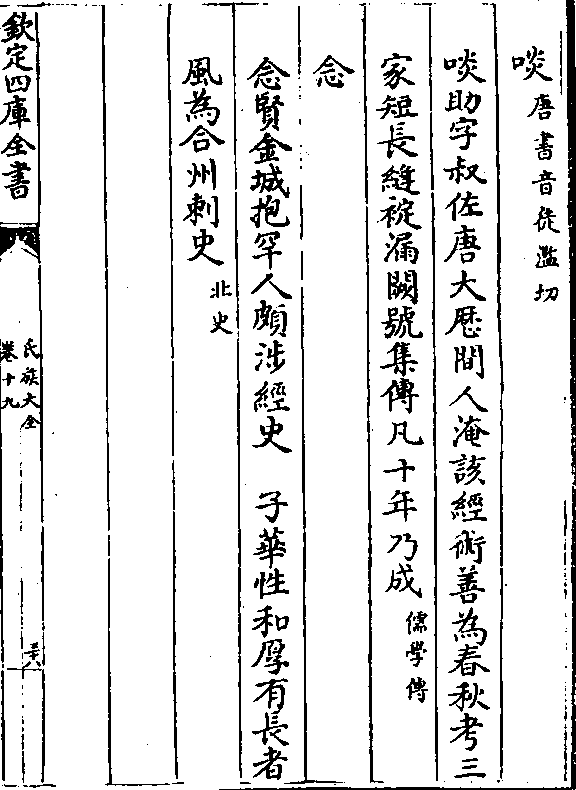 啖唐書音徒濫切
啖助字叔佐唐大厯間人淹該經術善為春秋考三
家短長縫䘺漏闕號集傳凡十年乃成儒學傳
念
念賢金城抱罕人頗涉經史 子華性和厚有長者
風為合州刺史北史
欽定四庫全書
氏族大全
卷十九
三十八